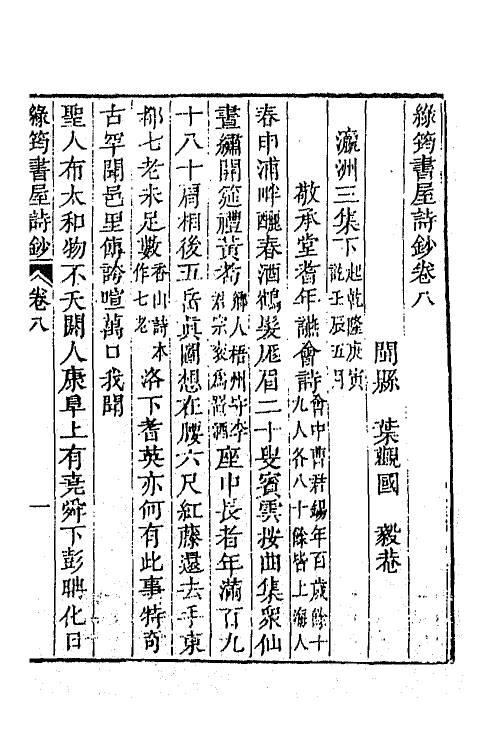 綠筠書屋詩鈔卷八
閩縣 葉觀國 毅菴
瀛洲三集下起乾隆庚寅訖壬辰五月
敬承堂耆年讌會詩會中曹君錫年百歲餘十九人各八十餘皆上海人
春申浦畔釃春酒鶴髮厖眉二十叟賓雲按曲集衆仙
晝繡開筵禮黃耇鄉人梧州守李君宗袁爲置酒座中長者年滿百九
十八十肩相後五岳眞圖想在腰六尺紅藤還去手東
都七老未足數香山詩本作七老洛下耆英亦何有此事特奇
古罕聞邑里傳誇喧萬口我聞
聖人布太和物不夭閼人康阜上有堯舜下彭聃化日
綠筠書屋詩鈔 卷八 一